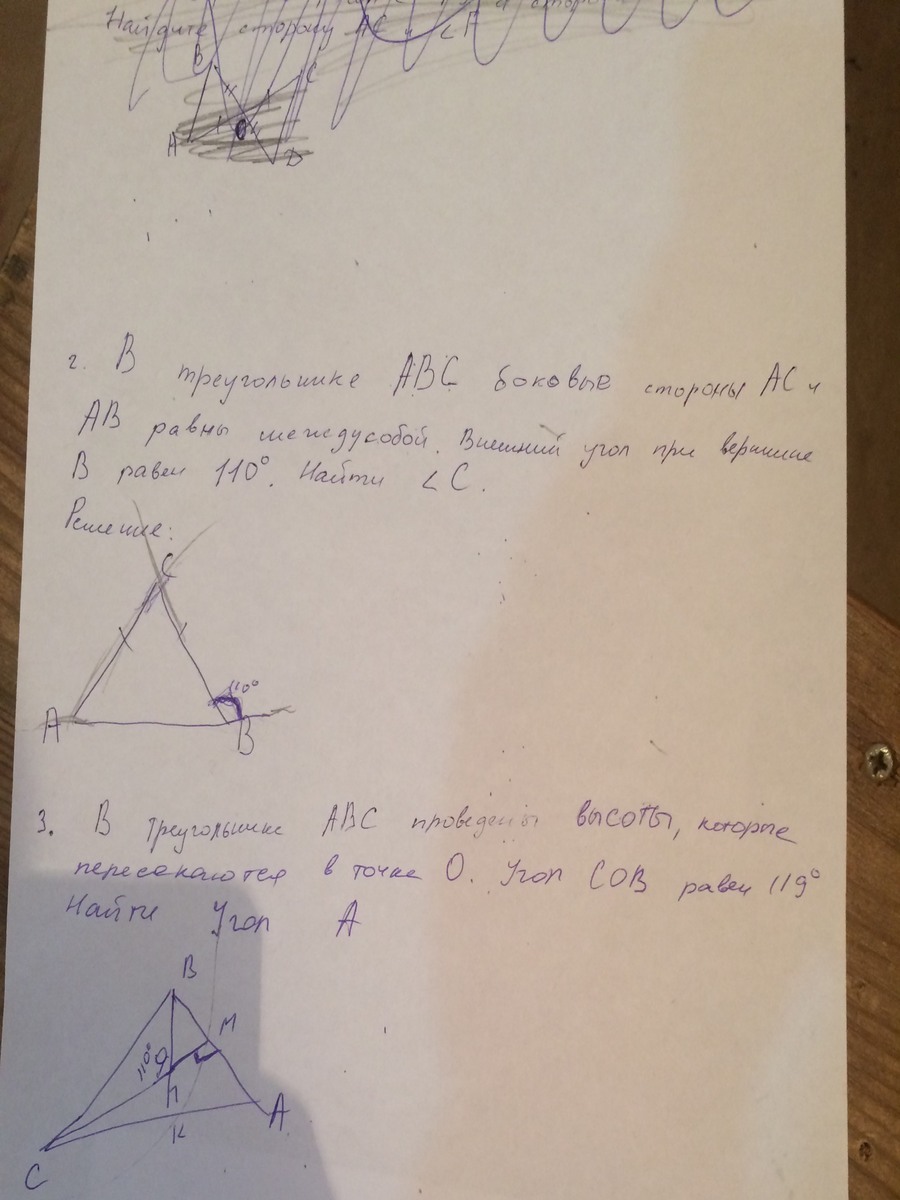 Найдите сторону AC и ∠A
B
C
A
O
D
2. В треугольнике ABC боковые стороны AC и
AB равны междусобой. Внешний угол при вершине
B равен 110°. Найти ∠C.
Решение:
C
110°
A
B
3. В треугольнике ABC проведены высоты, которые
пересекаются в точке O. Угол COB равен 119°
Найти Угол A
B
M
O
A
K
C